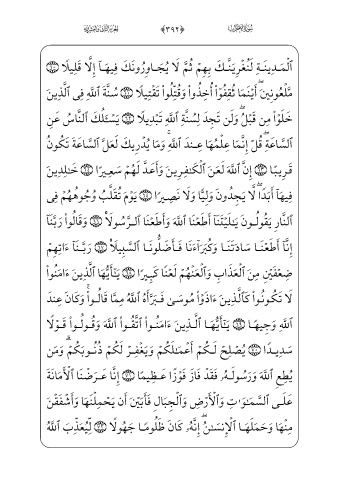 سورة الأحزاب ﴿٣٩٢﴾ الجزء الثاني والعشرون
ٱلْمَدِينَةِ لَنُغْرِيَنَّكَ بِهِمْ ثُمَّ لَا يُجَاوِرُونَكَ فِيهَآ إِلَّا قَلِيلًا ۝٦٠
مَّلْعُونِينَ ۖ أَيْنَمَا ثُقِفُوٓا۟ أُخِذُوا۟ وَقُتِّلُوا۟ تَقْتِيلًا ۝٦١ سُنَّةَ ٱللَّهِ فِى ٱلَّذِينَ
خَلَوْا۟ مِن قَبْلُ ۖ وَلَن تَجِدَ لِسُنَّةِ ٱللَّهِ تَبْدِيلًا ۝٦٢ يَسْـَٔلُكَ ٱلنَّاسُ عَنِ
ٱلسَّاعَةِ ۖ قُلْ إِنَّمَا عِلْمُهَا عِندَ ٱللَّهِ ۚ وَمَا يُدْرِيكَ لَعَلَّ ٱلسَّاعَةَ تَكُونُ
قَرِيبًا ۝٦٣ إِنَّ ٱللَّهَ لَعَنَ ٱلْكَـٰفِرِينَ وَأَعَدَّ لَهُمْ سَعِيرًا ۝٦٤ خَـٰلِدِينَ
فِيهَآ أَبَدًا ۖ لَّا يَجِدُونَ وَلِيًّا وَلَا نَصِيرًا ۝٦٥ يَوْمَ تُقَلَّبُ وُجُوهُهُمْ فِى
ٱلنَّارِ يَقُولُونَ يَـٰلَيْتَنَآ أَطَعْنَا ٱللَّهَ وَأَطَعْنَا ٱلرَّسُولَا۠ ۝٦٦ وَقَالُوا۟ رَبَّنَآ
إِنَّآ أَطَعْنَا سَادَتَنَا وَكُبَرَآءَنَا فَأَضَلُّونَا ٱلسَّبِيلَا۠ ۝٦٧ رَبَّنَآ ءَاتِهِمْ
ضِعْفَيْنِ مِنَ ٱلْعَذَابِ وَٱلْعَنْهُمْ لَعْنًا كَبِيرًا ۝٦٨ يَـٰٓأَيُّهَا ٱلَّذِينَ ءَامَنُوا۟
لَا تَكُونُوا۟ كَٱلَّذِينَ ءَاذَوْا۟ مُوسَىٰ فَبَرَّأَهُ ٱللَّهُ مِمَّا قَالُوا۟ ۚ وَكَانَ عِندَ
ٱللَّهِ وَجِيهًا ۝٦٩ يَـٰٓأَيُّهَا ٱلَّذِينَ ءَامَنُوا۟ ٱتَّقُوا۟ ٱللَّهَ وَقُولُوا۟ قَوْلًا
سَدِيدًا ۝٧٠ يُصْلِحْ لَكُمْ أَعْمَـٰلَكُمْ وَيَغْفِرْ لَكُمْ ذُنُوبَكُمْ ۗ وَمَن
يُطِعِ ٱللَّهَ وَرَسُولَهُۥ فَقَدْ فَازَ فَوْزًا عَظِيمًا ۝٧١ إِنَّا عَرَضْنَا ٱلْأَمَانَةَ
عَلَى ٱلسَّمَـٰوَٰتِ وَٱلْأَرْضِ وَٱلْجِبَالِ فَأَبَيْنَ أَن يَحْمِلْنَهَا وَأَشْفَقْنَ
مِنْهَا وَحَمَلَهَا ٱلْإِنسَـٰنُ ۖ إِنَّهُۥ كَانَ ظَلُومًا جَهُولًا ۝٧٢ لِّيُعَذِّبَ ٱللَّهُ